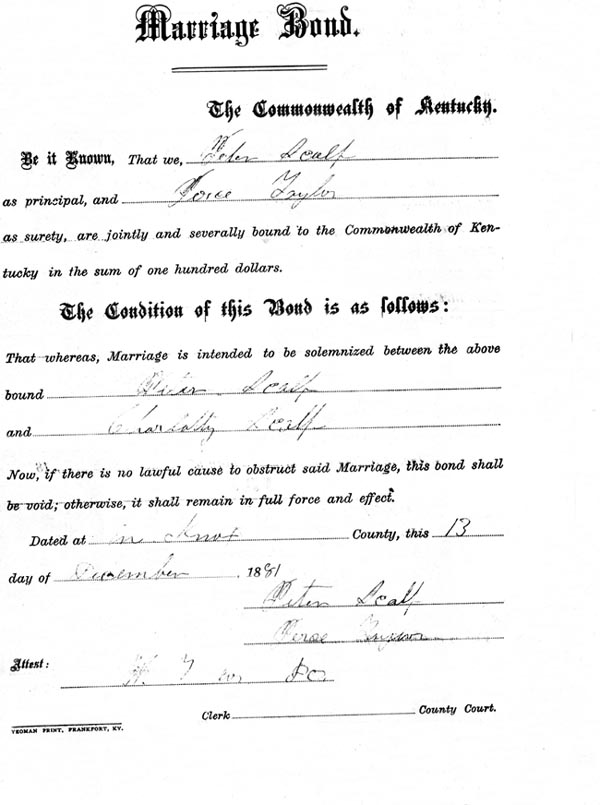 Marriage Bond.
The Commonwealth of Kentucky.
Be it Known, That we, Peter Scalf
as principal, and Taylor
as surety, are jointly and severally bound to the Commonwealth of Ken-
tucky in the sum of one hundred dollars.
The Condition of this Bond is as follows:
That whereas, Marriage is intended to be solemnized between the above
bound Peter Scalf
and Scalf
Now, if there is no lawful cause to obstruct said Marriage, this bond shall
be void; otherwise, it shall remain in full force and effect.
Dated at in Knox County, this 13
day of December 1881
Peter Scalf
Attest:
Clerk County Court.
YEOMAN PRINT, FRANKFORT, KY.